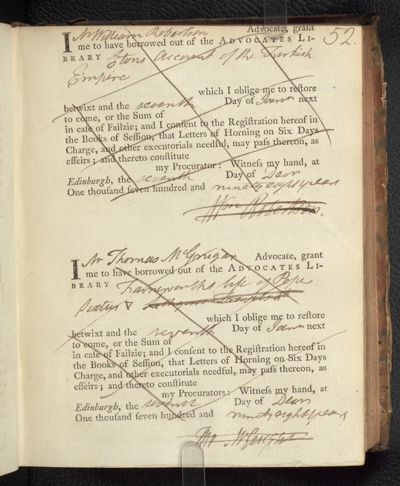 52.
I Mr William Robertson Advocate, grant
me to have borrowed out of the ADVOCATES LI-
BRARY Etons Account of the Turkish
Empire
which I oblige me to restore
betwixt and the seventh Day of Janry next
to come, or the Sum of
in case of Failzie; and I consent to the Registration hereof in
the Books of Session, that Letters of Horning on Six Days
Charge, and other executorials needful, may pass thereon, as
effeirs; and thereto constitute
my Procurator: Witness my hand, at
Edinburgh, the seventh Day of Decr
One thousand seven hundred and ninety eight years
Wm Robertson.
I Mr Thomas McGrugar Advocate, grant
me to have borrowed out of the ADVOCATES LI-
BRARY life of Pope
Sextus V
which I oblige me to restore
betwixt and the seventh Day of Janr next
to come, or the Sum of
in case of Failzie; and I consent to the Registration hereof in
the Books of Session, that Letters of Horning on Six Days
Charge, and other executorials needful, may pass thereon, as
effeirs; and thereto constitute
my Procurators: Witness my hand, at
Edinburgh, the seventh Day of Decr
One thousand seven hundred and ninety eight years
Tho McGrugar